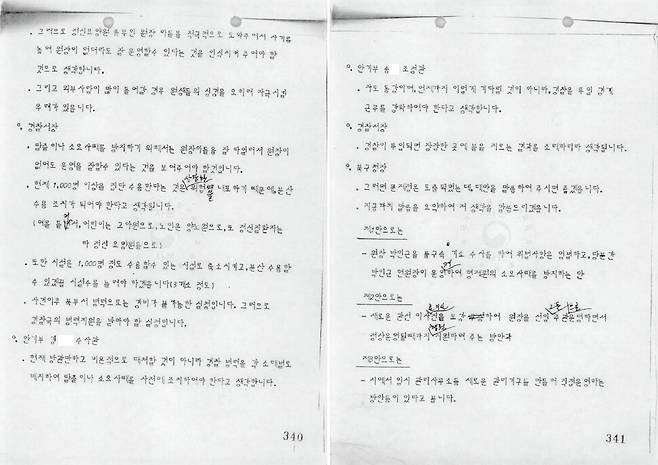 . 그러므로 정신요양원 총무인 원장 아들을 적극적으로 도와주어서 사기를
높여 원장이 없더라도 잘 운영할수 있다는 것을 인식시켜 주어야 할
것으로 생각합니다.
. 그리고 외부사람이 많이 들어갈 경우 원생들의 심경을 오히려 자극시킬
우려가 있읍니다.
○. 경찰서장
. 탈출이나 소요사태를 방지하기 위해서는 원장아들을 잘 타일러서 원장이
없어도 운영을 잘할수 있다는 것을 보여주어야 할것입니다.
. 현재 1,000명 이상을 집단 수용한다는 것은 상당한 위험성을 내포하기 때문에 분산
수용 조치가 되어야 한다고 생각됩니다.
(예를 들면, 어린이는 고아원으로, 노인은 양노원으로, 또 정신질환자는
타 정신 요양원등으로)
. 또한 시설은 1,000명 정도 수용할수 있는 시설로 축소시키고, 분산 수용할
수 있도록 시설수를 늘려야 하겠읍니다(3개소 정도)
. 사건이후 북부서 병력으로는 경비가 불가능한 실정입니다. 그러므로
경찰국의 병력지원을 받아야 할 실정입니다.
○. 안기부 김 수사관
. 현재 방관만하고 미온적으로 대처할 것이 아니라 경찰 병력을 각 소대별로
배치하여 탈출이나 소요사태를 사전에 조치하여야 한다고 생각합니다.
340
○. 안기부 송 조정관
. 저도 동감이며, 언제까지 이렇게 기다릴 것이 아니라, 경찰을 투입 경계
근무를 강화하여야 한다고 생각합니다.
○. 경찰서장
. 경찰이 투입되면 잠잠한 곳에 돌을 던지는 결과를 초래하리라 생각됩니다.
○. 북구청장
. 그러면 문제점은 도출되었는데, 대안을 말씀하여 주시면 좋겠읍니다.
. 지금까지 말씀을 요약하여 저 생각을 말씀드리겠읍니다.
제1안으로는
- 원장 박인근을 불구속 기소 수사를 하여 위법사항은 엄벌하고, 당분간
박인근 전원장이 운영하여 형제원의 소요사태를 방지하는 안
제2안으로는
- 새로운 관선 이사진을 보강하여 원장을 선임 운영하면서
정상운영될때까지 지원하여 주는 방안과
제3안으로는
- 시에서 임시 관리사무소등 새로운 관리기구를 만들어 직접운영하는
방안등이 있다고 봅니다.
341